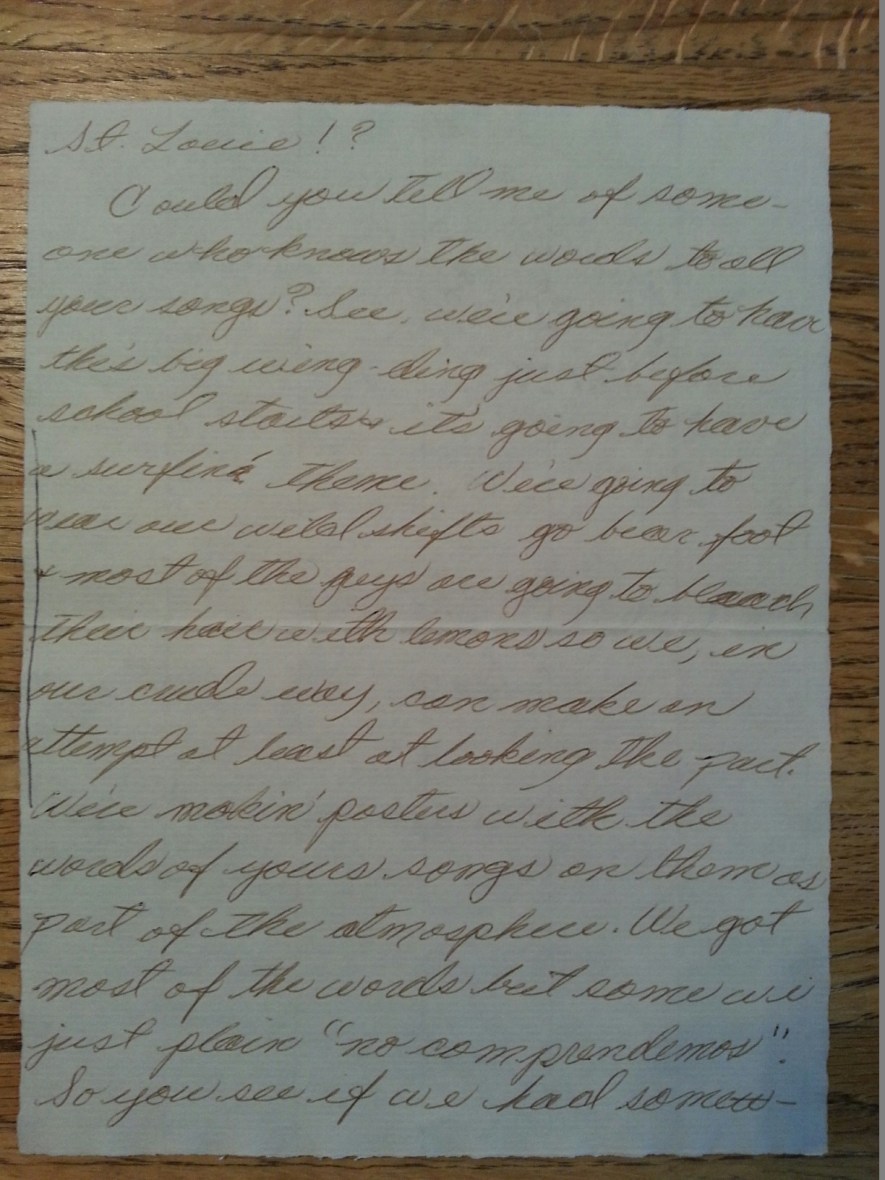 St. Louie!?
Could you tell me of some-
one who knows the words to all
your songs? See, we're going to have
this big wing-ding just before
school starts & it's going to have
a surfin' theme. We're going to
wear our wild shifts go bear foot
& most of the guys are going to bleach
their hair with lemons so we, in
our crude way, can make an
attempt at least at looking the part.
We're makin' posters with the
words of yours songs on them as
part of the atmosphere. We got
most of the words but some we
just plain "no comprendemos".
So you see if we had some-